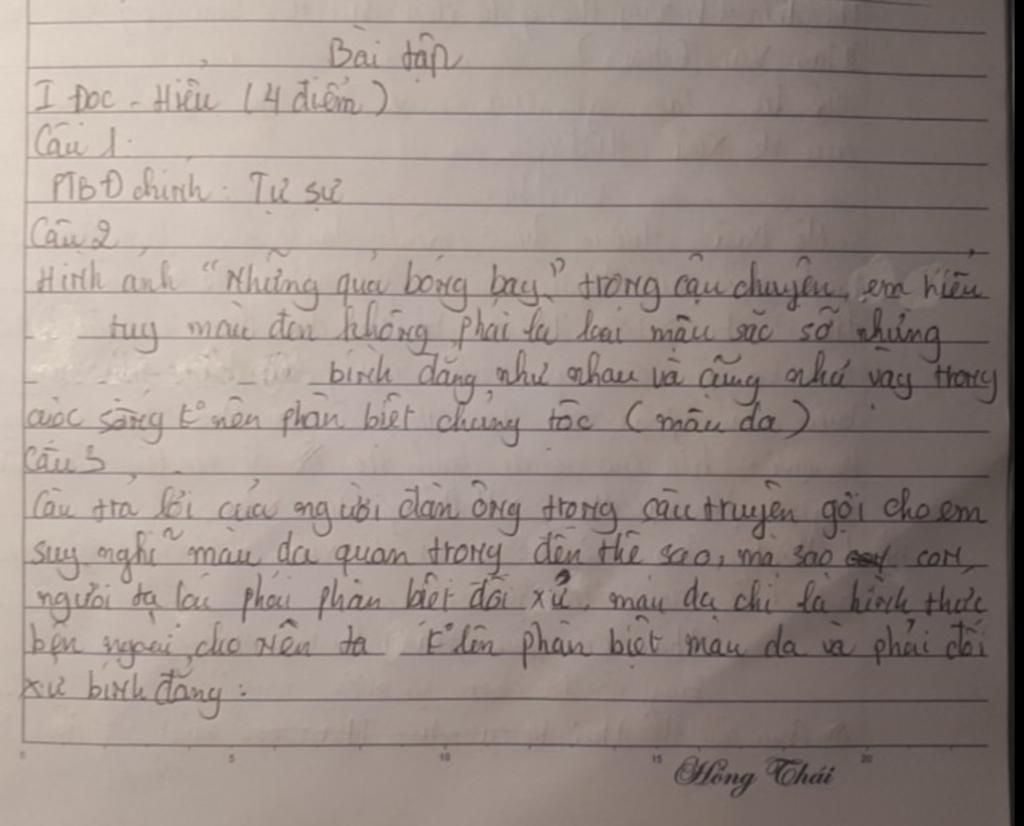 Bài tập
I Đọc - Hiểu (4 điểm)
Câu 1:
PTBĐ chính: Tự sự
Câu 2
Hình ảnh "Những quả bóng bay" trong câu chuyện, em hiểu
tuy màu đen không phải là loại mầu sắc sỡ nhưng
bình đẳng như nhau và cũng như vậy trong
cuộc sống to nên phân biệt chủng tộc (mầu da)
Câu 3
Câu trả lời của người đàn ông trong câu truyện gợi cho em
suy nghĩ màu da quan trọng đến thế sao, mà sao con
người ta lại phải phân biệt đối xử, màu da chỉ là hình thức
bên ngoài, cho nên ta to lên phân biệt màu da và phải đối
xử bình đẳng.
Hồng Thái